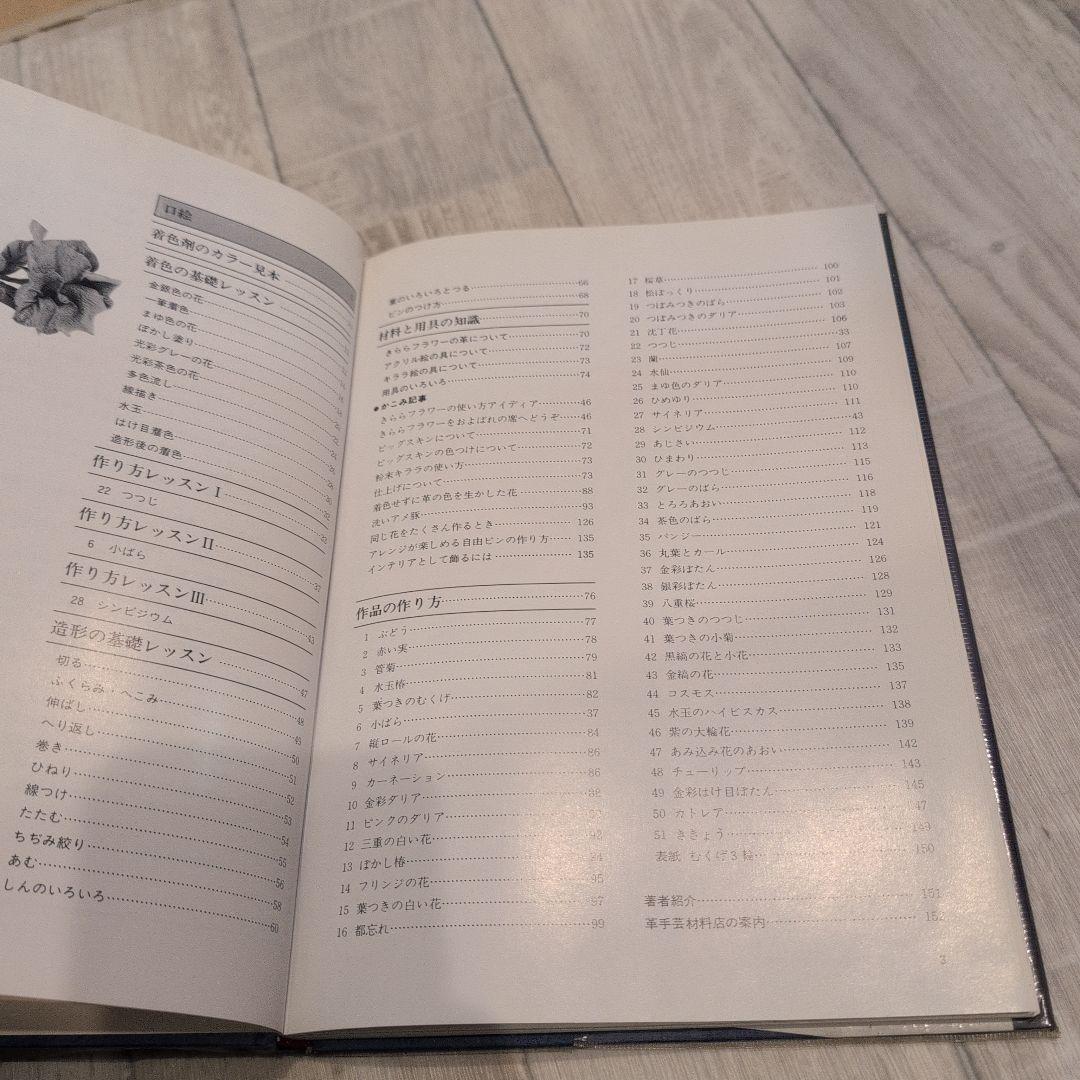 口絵
着色剤のカラー見本
着色の基礎レッスン
金銀色の花
一筆着色
まゆ色の花
ぼかし塗り
光彩グレーの花
光彩茶色の花
多色流し
線描き
水玉
はけ目着色
造形後の着色
作り方レッスンⅠ 32
22 つつじ 32
作り方レッスンⅡ 37
6 小ばら
作り方レッスンⅢ 43
28 シンビジウム
造形の基礎レッスン 47
切る 48
ふくらみ・へこみ 49
伸ばし 50
へり返し 51
巻き 52
ひねり 53
線つけ 54
たたむ 55
ちぢみ絞り 56
あむ 58
しんのいろいろ 60
葉のいろいろとつる 66
ピンのつけ方 68
材料と用具の知識 70
きららフラワーの革について 70
アクリル絵の具について 72
キララ絵の具について 73
用具のいろいろ 74
●かこみ記事
きららフラワーの使い方アイディア 46
きららフラワーをおよばれの席へどうぞ 46
ピッグスキンについて 71
ピッグスキンの色つけについて 72
粉末キララの使い方 73
仕上げについて 73
着色せずに革の色を生かした花 88
洗いアメ豚 93
同じ花をたくさん作るとき 126
アレンジが楽しめる自由ピンの作り方 135
インテリアとして飾るには 135
作品の作り方 76
1 ぶどう 77
2 赤い実 78
3 管菊 79
4 水玉椿 81
5 葉つきのむくげ 82
6 小ばら 37
7 縦ロールの花 84
8 サイネリア 86
9 カーネーション 86
10 金彩ダリア
11 ピンクのダリア
12 三重の白い花
13 ぼかし椿
14 フリンジの花 95
15 葉つきの白い花
16 都忘れ 99
17 桜草 100
18 松ぼっくり 101
19 つぼみつきのばら 102
20 つぼみつきのダリア 103
21 沈丁花 106
22 つつじ 33
23 蘭 107
24 水仙 109
25 まゆ色のダリア 110
26 ひめゆり 110
27 サイネリア 111
28 シンビジウム 43
29 あじさい 112
30 ひまわり 113
31 グレーのつつじ 115
32 グレーのばら 116
33 とろろあおい 118
34 茶色のばら 119
35 パンジー 121
36 丸葉とカール 124
37 金彩ぼたん 126
38 銀彩ぼたん 128
39 八重桜 129
40 葉つきのつつじ 131
41 葉つきの小菊 132
42 黒縞の花と小花 133
43 金縞の花 135
44 コスモス 137
45 水玉のハイビスカス 138
46 紫の大輪花 139
47 あみ込み花のあおい 142
48 チューリップ 143
49 金彩はけ目ぼたん 145
50 カトレア
51 ききょう 149
表紙 むくげ3種 150
著者紹介 151
革手芸材料店の案内 152
3